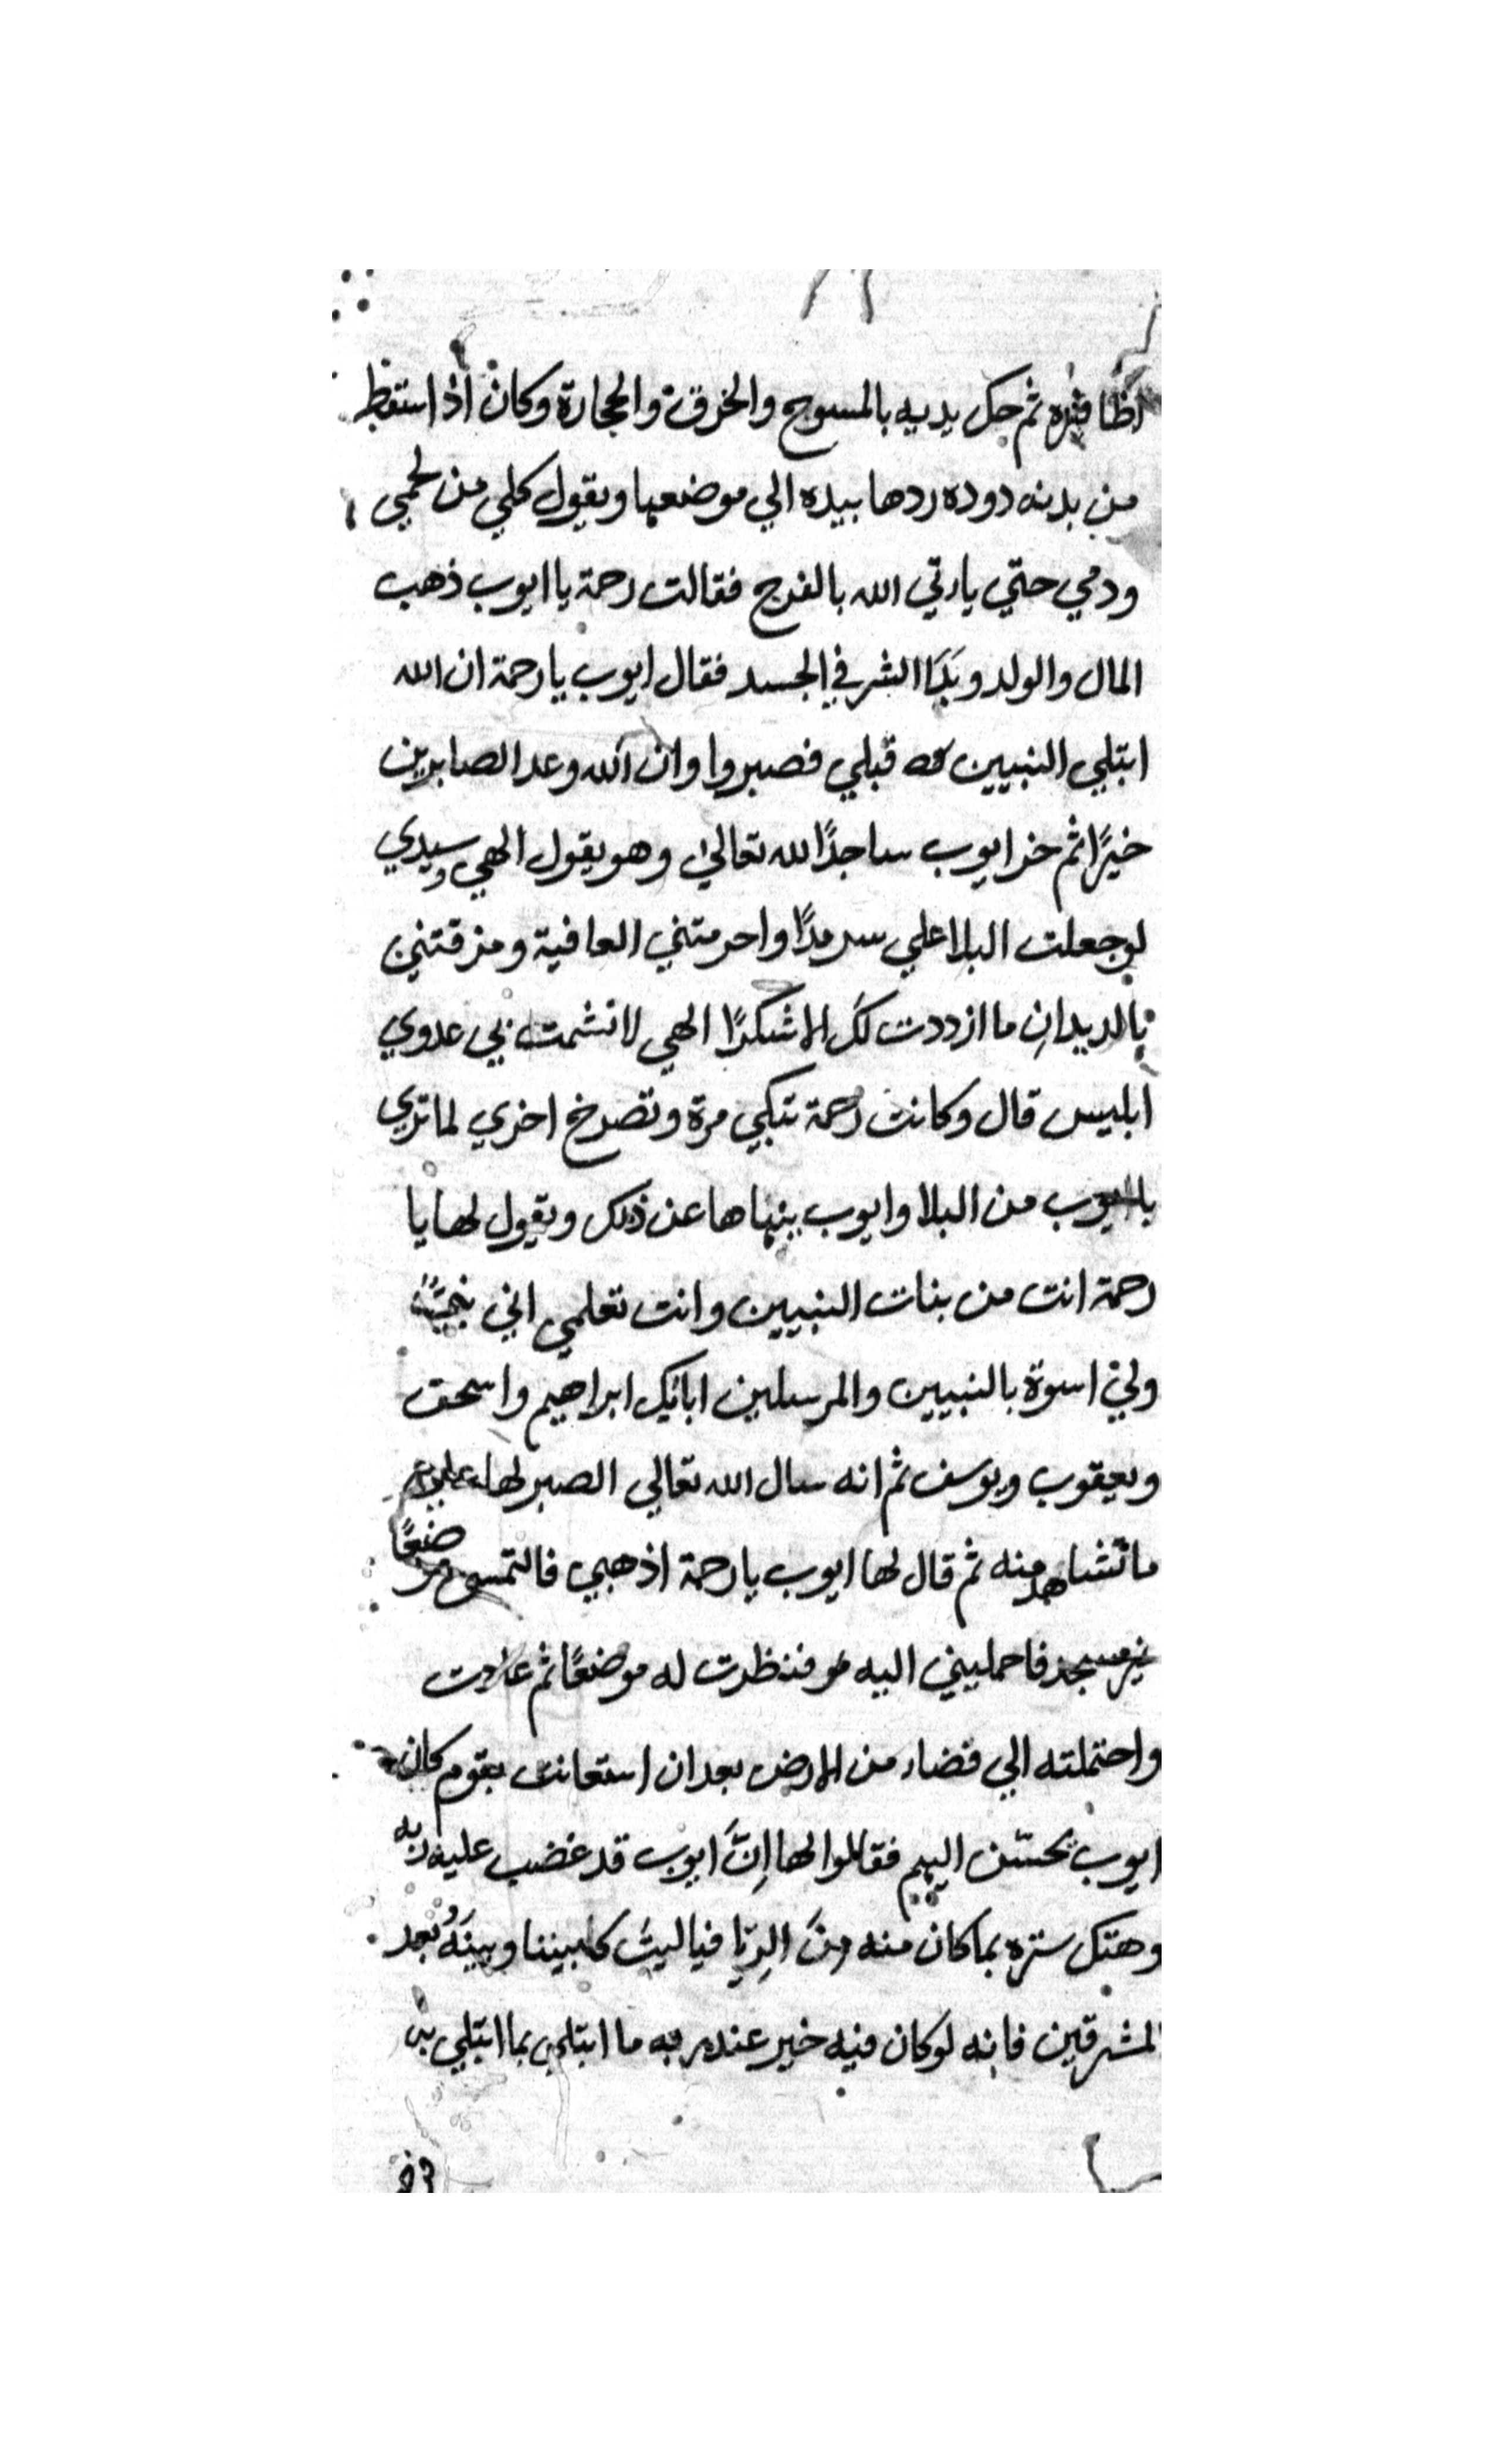 اظافره ثم حك يديه بالمسوح والخرقة والحجارة وكان اذا سقط
من بدنه دوده ردها بيده الي موضعها ويقول كلي من لحمي
ودمي حتي ياءتي الله بالفرج فقالت رحمة يا ايوب ذهب
المال والولد وبَدَا الشر في الجسد فقال ايوب يا رحمة ان الله
ابتلي النبيين قبلي فصبروا وان الله وعد الصابرين
خيرًا ثم خر ايوب ساجدًا لله تعالي وهو يقول الهي وسيدي
لوجعلت البلا علي سرمدًا واحرمتني العافية ومزقتني
بالديدانِ ما ازددت لكَ الا شكرًا الهي لا تشمت بي عدوي
ابليس قال وكانت رحمة تبكي مرة وتصرخ اخري لما تري
بايوب من البلا وايوب ينهاها عن ذلك ويقول لها يا
رحمة انت من بنات النبيين وانت تعلمي اني نبيًا
ولي اسوة بالنبيين والمرسلين ابائك ابراهيم واسحق
ويعقوب ويوسف ثم انه سال الله تعالي الصبر لها علي
ما تشاهد منه ثم قال لها ايوب يا رحمة اذهبي فالتمسي موضعًا
غير مسجد فاحمليني اليه فنظرت له موضعًا ثم عادت
واحتملته الي فضاء من الارض بعد ان استعانت بقوم كان
ايوب يحسّن اليهم فقالوا لها اِنَّ ايوب قد غضب عليه ربه
وهتك ستره بما كان منه مِنَ الرِيّا فيا ليتَ كا بيننا وبينَهُ بُعد
المشرقين فانه لو كان فيه خير عند ربه ما ابتلي بما ابتلي به